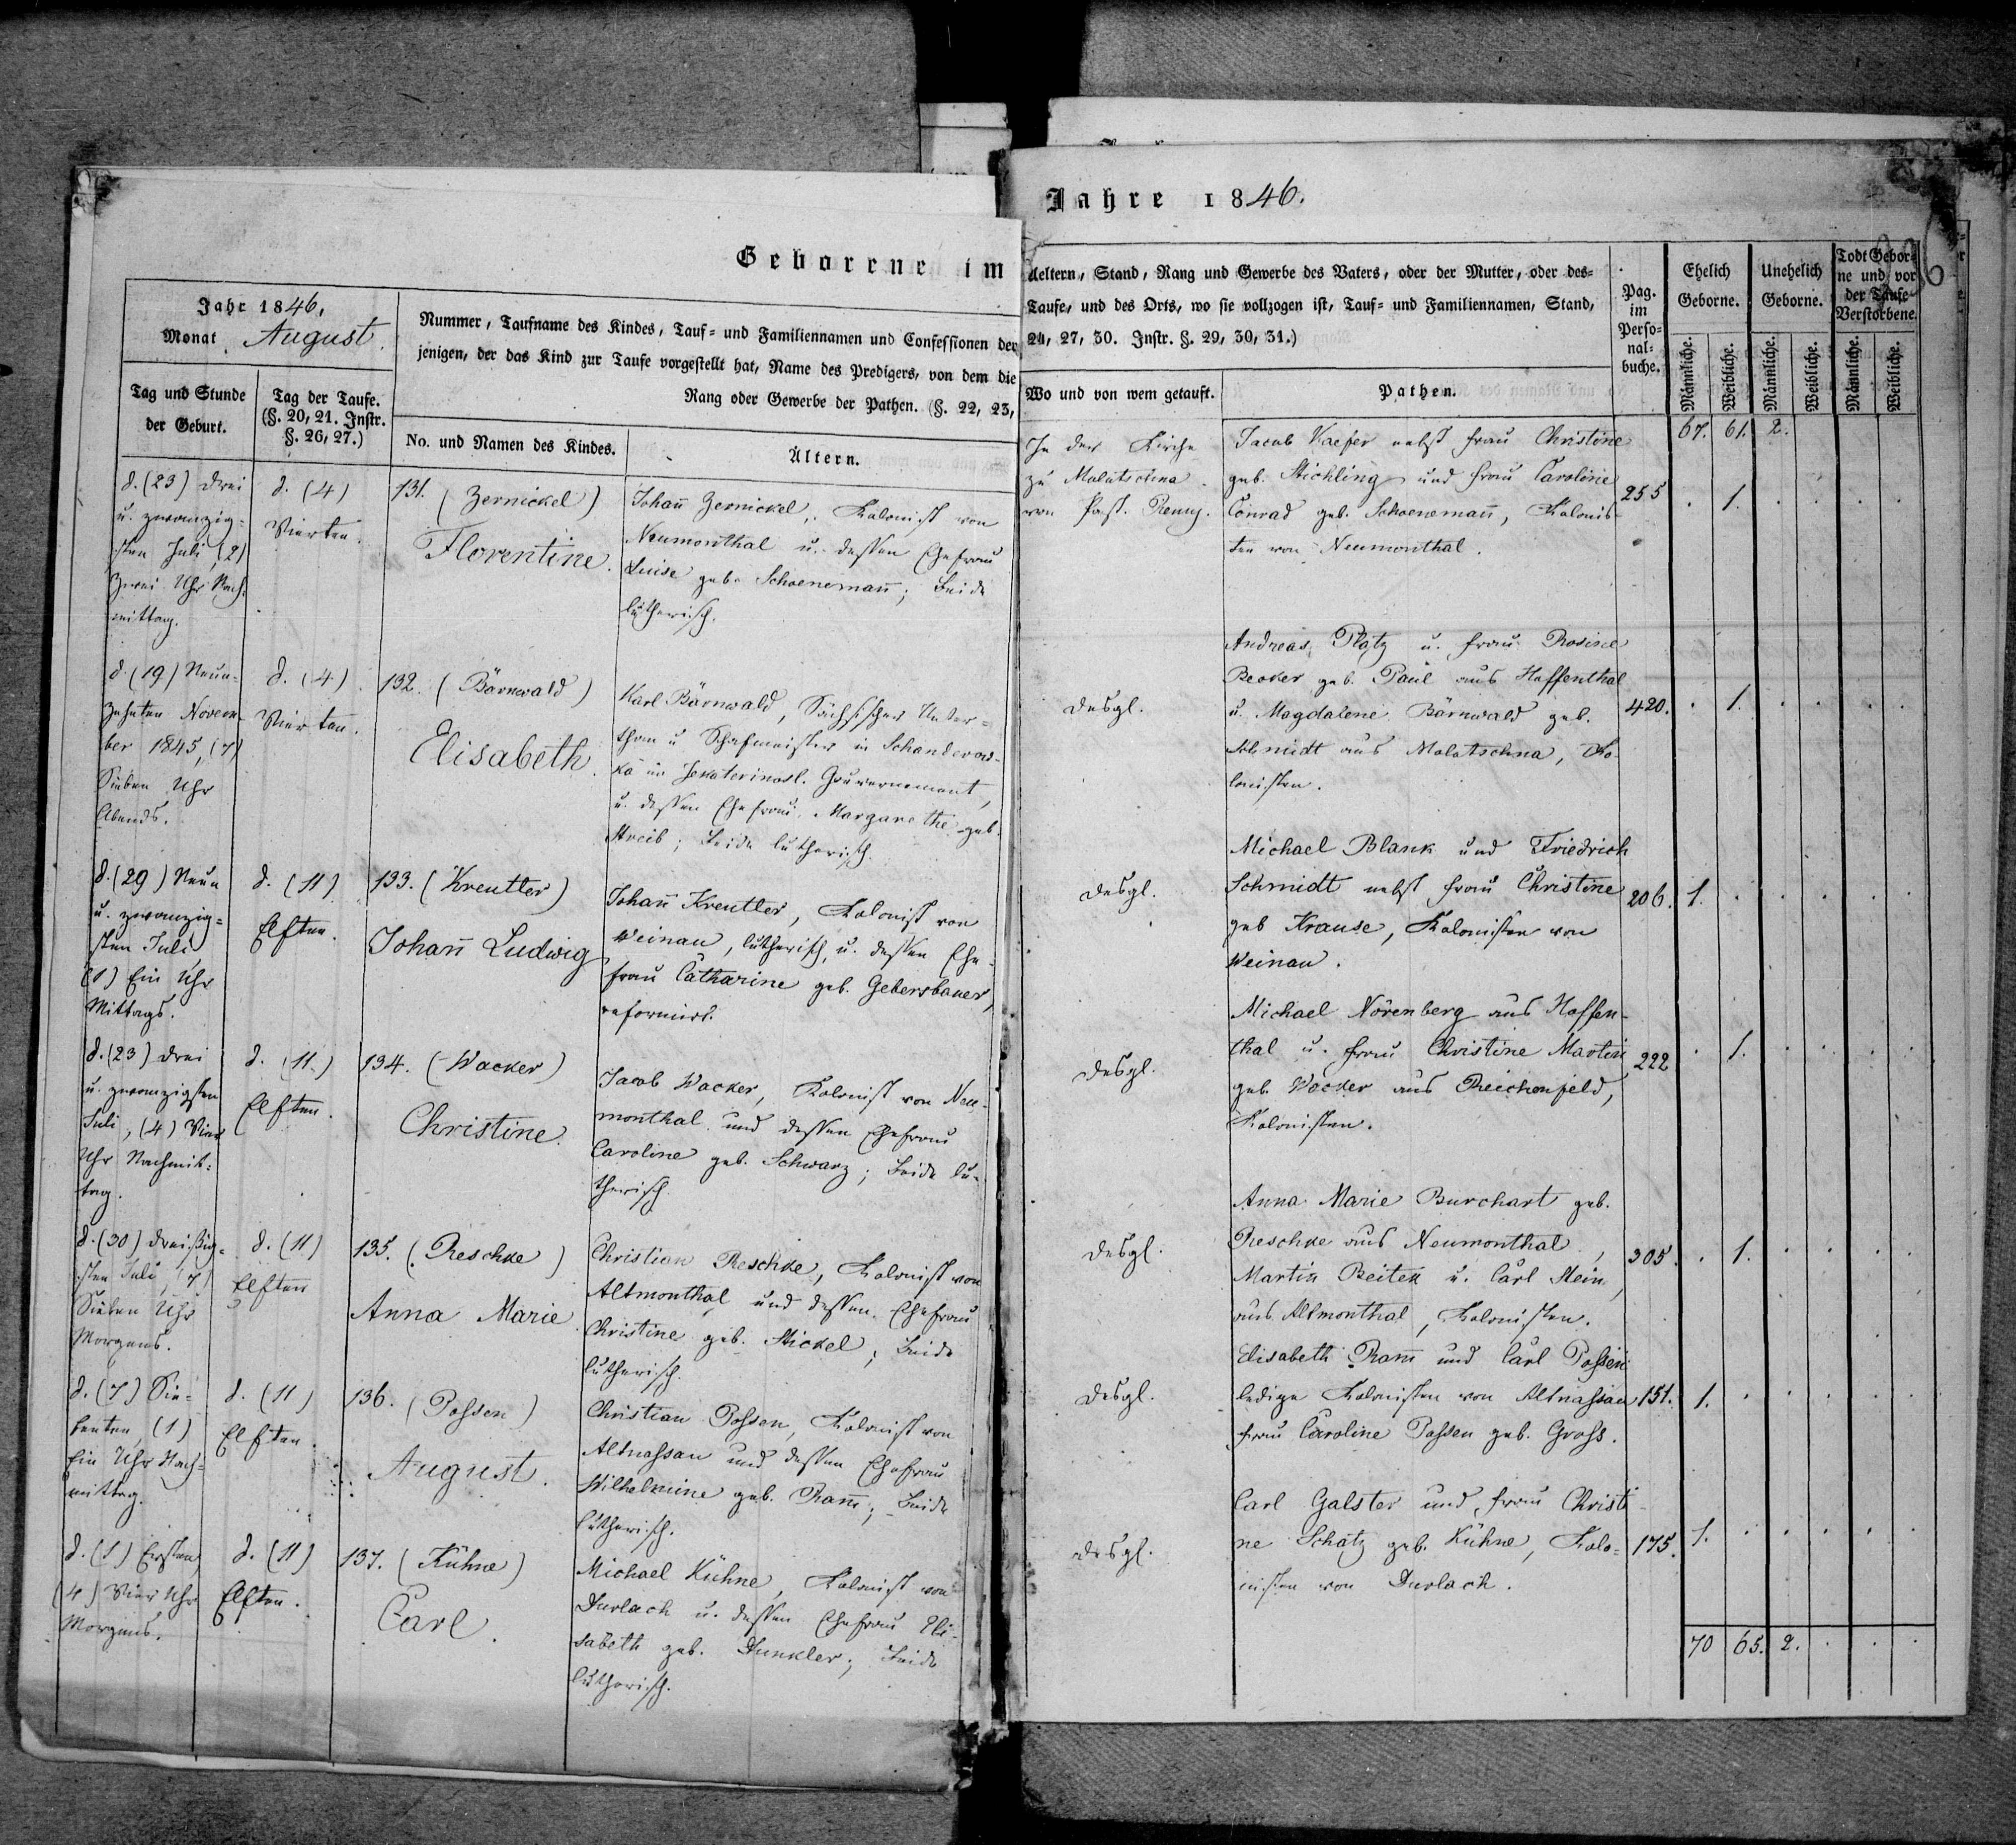 Geborene im Jahre 1846.
Jahr 1846,
Monat August.
Nummer, Taufname des Kindes, Tauf= und Familiennamen und Confessionen der Aeltern, Stand, Rang und Gewerbe des Vaters, oder der Mutter, oder des=
jenigen, der das Kind zur Taufe vorgestellt hat, Name des Predigers, von dem die Taufe, und des Orts, wo sie vollzogen ist, Tauf= und Familiennamen, Stand,
Rang oder Gewerbe der Pathen. (§. 22, 23, 24, 27, 30. Instr. §. 29, 30, 31.)
Tag und Stunde
der Geburt.
Tag der Taufe.
(§. 20, 21. Instr.
§. 26, 27.)
No. und Namen des Kindes.
Ältern.
Wo und von wem getauft.
Pathen.
Pag.
im
Perso=
nal=
buche.
Ehelich
Geborne.
Unehelich
Geborne.
Todt Gebor=
ne und vor
der Taufe
Verstorbene.
Männliche.
Weibliche.
Männliche.
Weibliche.
Männliche.
Weibliche.
67. 61. 2.
d. (23) drei
u. zwanzig=
sten Juli, (2)
Zwei Uhr Nach=
mittag.
d. (4)
Vierten.
131. (Zernickel)
Florentine.
Johan̄ Zernickel, Kolonist von
Neumonthal u. dessen Ehefrau
Luise geb. Schoeneman̄; Beide
lutherisch.
In der Kirche
zu Molotschna
von Past.
Jacob Kaefer nebst Frau Christine
geb. Stichling und Frau Caroline
Conrad geb. Schoeneman̄, Kolonis-
ten von Neumonthal.
255 . 1. . . . .
d. (19) Neun=
zehnten Novem-
ber 1845, (7)
Sieben Uhr
Abends.
d. (4)
Vierten.
132. (Bärnwald)
Elisabeth.
Karl Bärnwald, Sächsischer Unter=
than u Schafmeister in
ka im Jekaterinosl. Gouvernement,
u. dessen Ehefrau Margarethe geb.
Streib; Beide lutherisch.
desgl.
Andreas Platz u. Frau Rosine
Becker geb. Paul aus Hoffenthal
u. Magdalene Bärnwald geb.
Schmidt aus Molotschna, Ko-
lonisten.
420. . 1. . . . .
d. (29) Neun
u. zwanzig=
sten Juli
(1) Ein Uhr
Mittags.
d. (11)
Elften.
133. (Kreutter)
Johan̄ Ludwig
Johan̄ Kreutter, Kolonist von
Weinau, lutherisch, u. dessen Ehe-
frau Catharine geb. Gebersbauer,
reformirt.
desgl.
Michael Blank und Friedrich
Schmidt nebst Frau Christine
geb Krause, Kolonisten von
Weinau.
206. 1. . . . .
d. (23) drei
u. zwanzigsten
Juli, (4) Vier
Uhr Nachmit=
tag.
d. (11.)
Elften.
134. (Wacker)
Christine.
Jacob Wacker, Kolonist von Neu-
monthal und dessen Ehefrau
Caroline geb. Schwarz; Beide lu-
therisch
desgl.
Michael Nörenberg aus Hoffen-
thal u. Frau Christine Martin
geb. Wacker aus Reichenfeld,
Kolonisten.
222 . 1. . . . .
d. (30) dreißig=
sten Juli, (7)
Sieben Uhr
Morgens.
d. (11)
Elften
135. (Reschke)
Anna Marie
Christian Reschke, Kolonist von
Altmonthal und dessen Ehefrau
Christine geb. Stickel; Beide
lutherisch.
desgl.
Anna Marie Burchart geb.
Reschke aus Neumonthal,
Martin Beitek u. Carl Stein,
aus Altmonthal, Kolonisten.
305. . 1. . . . .
d. (7) Sie=
benten, (1)
Ein Uhr Nach=
mittag.
d. (11)
Elften.
136. (Possen)
August.
Christian Possen, Kolonist von
Altnassau und dessen Ehefrau
Wilhelmine geb. Ram̄; Beide
lutherisch.
desgl.
Elisabeth Ram̄ und Carl Possen
ledige Kolonisten von Altnassau
Frau Caroline Possen geb. Gross.
151. 1. . . . . .
d. (1) Ersten,
(4) Vier Uhr
Morgens.
d. (11)
Elften.
137. (Kühne)
Carl.
Michael Kühne, Kolonist von
Durlach u. dessen Ehefrau Eli-
sabeth geb. Dunkler; Beide
lutherisch.
desgl.
Carl Galster und Frau Christi-
ne Schatz geb. Kühne, Kolo=
nisten von Durlach.
175. 1. . . . . .
70 65. 2. . . .